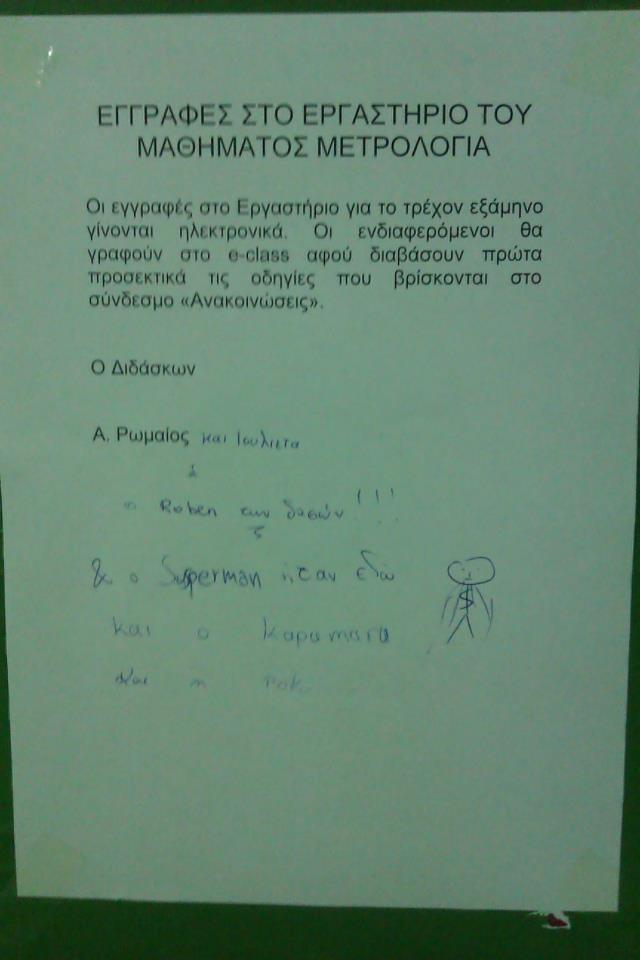 ΕΓΓΡΑΦΕΣ ΣΤΟ ΕΡΓΑΣΤΗΡΙΟ ΤΟΥ
ΜΑΘΗΜΑΤΟΣ ΜΕΤΡΟΛΟΓΙΑ
Οι εγγραφές στο Εργαστήριο για το τρέχον εξάμηνο
γίνονται ηλεκτρονικά. Οι ενδιαφερόμενοι θα
γραφούν στο e-class αφού διαβάσουν πρώτα
προσεκτικά τις οδηγίες που βρίσκονται στο
σύνδεσμο «Ανακοινώσεις».
Ο Διδάσκων
Α. Ρωμαίος και Ιουλιετα
ο Roben των δασών!!!
& ο Superman ήταν εδώ
S
και ο
και η